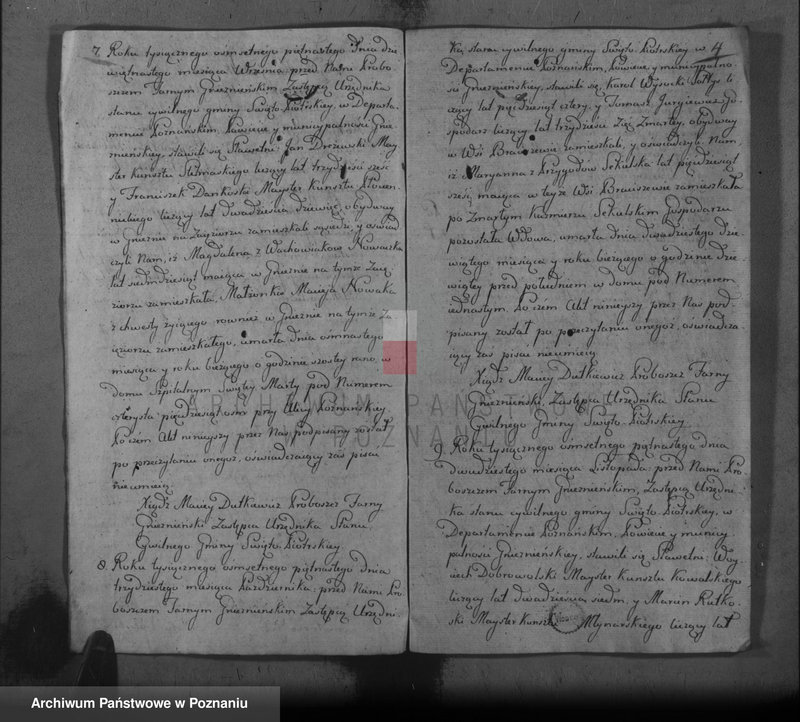 7. Roku tysiącznego osmsetnego piętnastego Dnia dzie
więtnastego miesiąca Września przed Nami Probo
szczem Farnym Gnieznienskim Zastępcą Urzędnika
stanu cywilnego gminy Swięto Piotrskiey w Departa
mencie Poznańskim, Powiecie y municypalnosci Gnie
znieńskiey, stawili się Sławetni: Jan Drzewski May
ster kunsztu Slusarskiego liczący lat trzydzieści sześć
y Franciszek Dankoski Mayster Kunsztu
liczący lat dwadzieścia dziewięć, obydwaj
w Gnieznie na Zaieziorzu zamieszkali sąsiedzi, y oswiad
czyli Nam, iż Magdalena z Wachowiakow Nowaczka
lat siedmdziesiąt maiąca w Gnieznie na tymze Zaie
ziorzu zamieszkała, Małżonka Macieja Nowaka
z żyiącego rowniez w Gnieznie na tymze Za
ieziorzu zamieszkałego, umarła dnia ośmnastego
miesiąca y roku biezącego o godzinie szostey rano, w
domu Szpitalnym Swiętey Marty pod Numerem
czterysta piędziesiąt osm przy Ulicy Poznańskiey
Po czem Akt ninieyszy przez Nas podpisany został
po przeczytaniu onegoż, oswiadczaiący zaś pisać
nieumieią
Xiądz Maciey Dutkiewicz Proboszcz Farny
Gnieznieński Zastępca Urzędnika Stanu
Cywilnego Gminy Swięto Piotrskiey
8. Roku tysiącznego osmsetnego piętnastego dnia
trzydziestego miesiąca Października, przed Nami Pro
boszczem Farnym Gnieznienskim Zastępcą Urzędni
4
ka stanu cywilnego gminy Swięto Piotrskiey w
Departamencie Poznańskim, Powiecie y municypalno
sci Gnieznienskiey, stawili się, Karol Wysocki Sołtys li
czący lat pięćdziesiąt cztery, y Tomasz Gos
podarz liczący lat trzydzieści Zięć Zmarłey, obydway
w Wsi Braciszewie zamieszkali, y oswiadczyli Nam,
iż Maryanna z Przygodow Sekulska lat pięćdziesiąt
sześć maiąca w teyże Wsi Braciszewie zamieszkała
po Zmarłym Kaźmierzu Sekulskim Gospodarzu
pozostała Wdowa, umarła dnia dwudziestego dzie
wiątego miesiąca y roku biezącego o godzinie dzie
wiątey przed południem w domu pod Numerem
iednastym. Po czem Akt ninieyszy przez Nas pod
pisany został po przeczytaniu onegoz, oswiadcza
iący zas pisać nieumieią
Xiądz Maciey Dutkiewicz Proboszcz Farny
Gnieznieński, Zastępca Urzędnika Stanu
Cywilnego Gminy Swięto-Piotrskiey
9. Roku tysiącznego osmsetnego piętnastego dnia
dwudziestego miesiąca Listopada przed Nami Pro
boszczem Farnym Gnieznienskim, Zastępcą Urzędni
ka stanu cywilnego gminy Swięto Piotrskiey, w
Departamencie Poznańskim, Powiecie y municy
palnosci Gnieznienskiey, stawili się Sławetni: Woy
ciech Dobrowolski Mayster Kunsztu Kowalskiego
liczący lat dwadzieścia siedm, y Marcin Rutko
ski Mayster kunsztu Młynarskiego liczący lat
ARCHIWUM PAŃSTWOWE
W POZNANIU
Archiwum Państwowe w Poznaniu